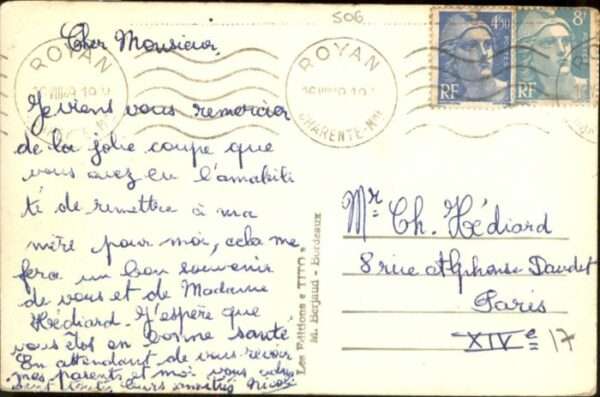 506
Cher Monsieur.
Je viens vous remercier
de la jolie coupe que
vous avez eu l'amabili
té de remettre à ma
mère pour moi, cela me
fera un bon souvenir
de vous et de Madame
Hédiard. J'espère que
vous êtes en bonne santé
En attendant de vous revoir
mes parents et moi vous
leurs amitiés
ROYAN
CHARENTE-MME
ROYAN
CHARENTE-MME
4,50
RF
8F
RF
Les Editions « TITO »
M. Berjaud - Bordeaux
Mr. Ch. Hédiard
8 rue Alphonse Daudet
Paris
XIVe 17